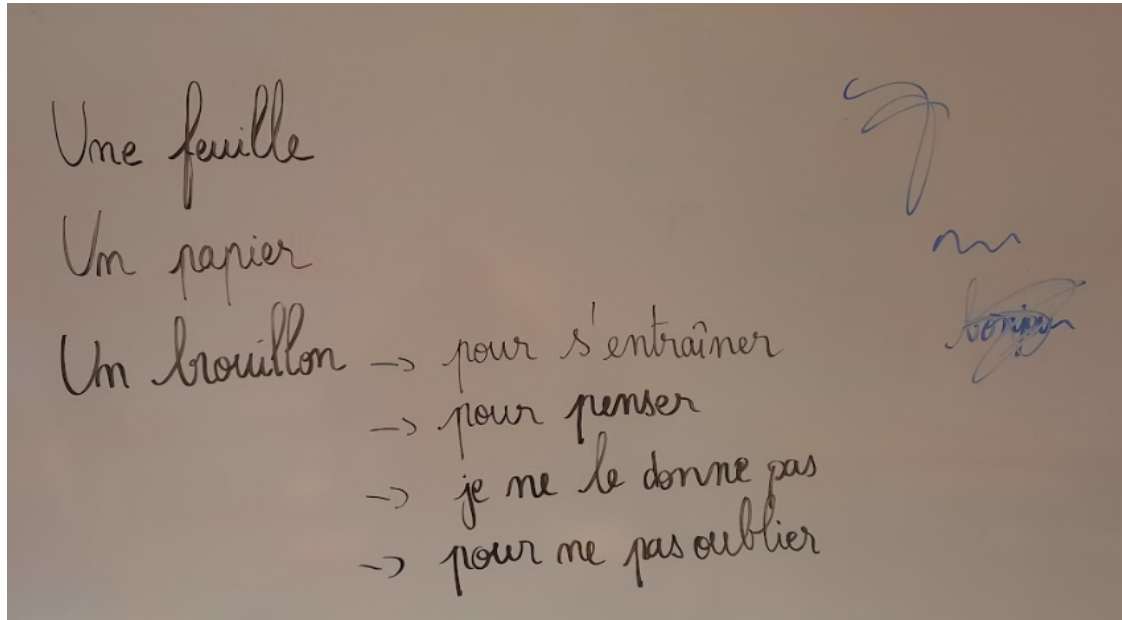 Une feuille
Un papier
Un brouillon -> pour s'entraîner
-> pour penser
-> je ne le donne pas
-> pour ne pas oublier